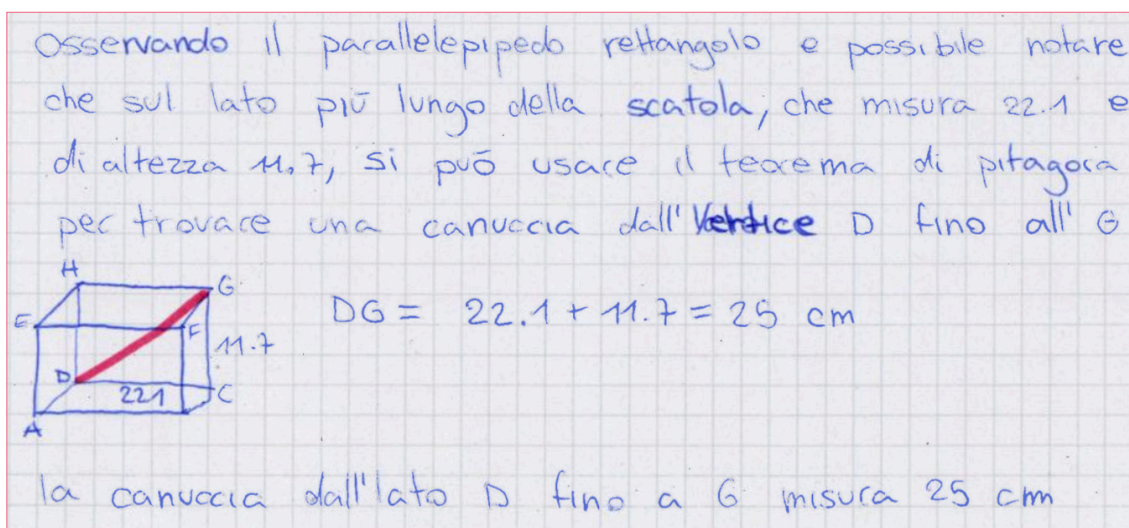 Osservando il parallelepipedo rettangolo e possibile notare
che sul lato più lungo della scatola, che misura 22.1 e
di altezza 11.7, si può usare il teorema di pitagora
per trovare una canuccia dall'Vertice D fino all' G
H
G
E
F
11.7
D
22.1
C
A
DG = 22.1 + 11.7 = 25 cm
la canuccia dall'lato D fino a G misura 25 cm